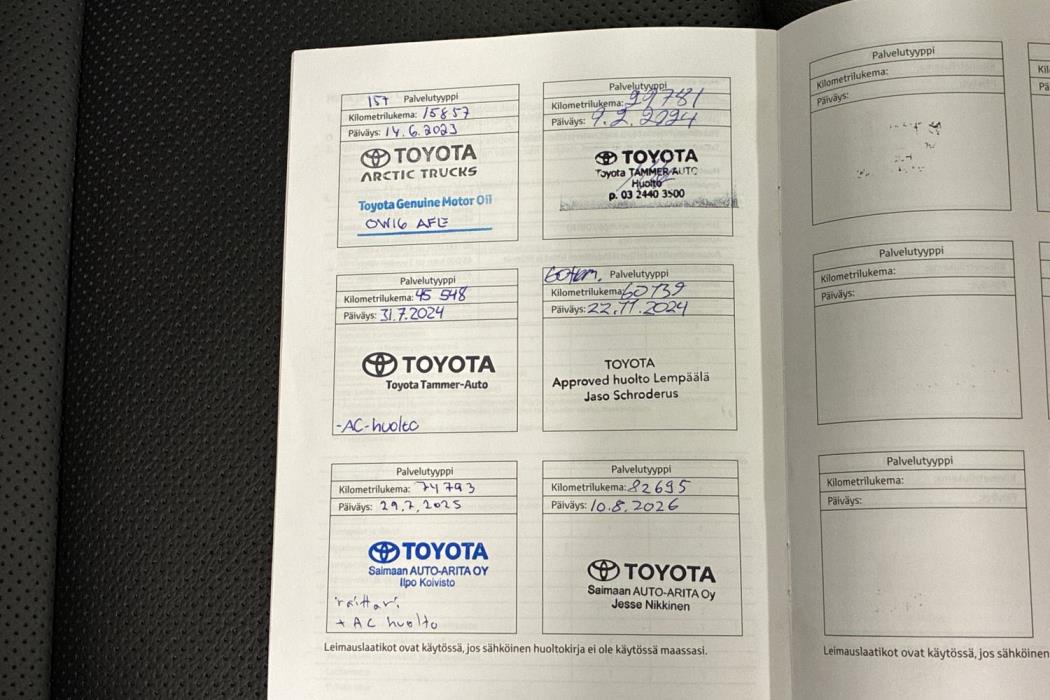 IST Palvelutyyppi
Kilometrilukema: 15857
Päiväys: 14.6.2023
TOYOTA
ARCTIC TRUCKS
Toyota Genuine Motor Oil
0W16 AFE
Palvelutyyppi
Kilometrilukema: 29781
Päiväys: 9.2.2024
TOYOTA
Toyota TAMMER-AUTO
Huolto
p. 03 2440 3500
Palvelutyyppi
Kilometrilukema: 45 548
Päiväys: 31.7.2024
TOYOTA
Toyota Tammer-Auto
-AC-huolto
Palvelutyyppi
Kilometrilukema: 60739
Päiväys: 22.11.2024
TOYOTA
Approved huolto Lempäälä
Jaso Schroderus
Palvelutyyppi
Kilometrilukema: 74793
Päiväys: 29.7.2025
TOYOTA
Saimaan AUTO-ARITA OY
Ilpo Koivisto
+ AC huolto
Palvelutyyppi
Kilometrilukema: 82695
Päiväys: 10.8.2026
TOYOTA
Saimaan AUTO-ARITA Oy
Jesse Nikkinen
Leimauslaatikot ovat käytössä, jos sähköinen huoltokirja ei ole käytössä maassasi.
Palvelutyyppi
Kilometrilukema:
Päiväys:
Palvelutyyppi
Kilometrilukema:
Päiväys:
Palvelutyyppi
Kilometrilukema:
Päiväys:
Leimauslaatikot ovat käytössä, jos sähköinen
Kil
Pä